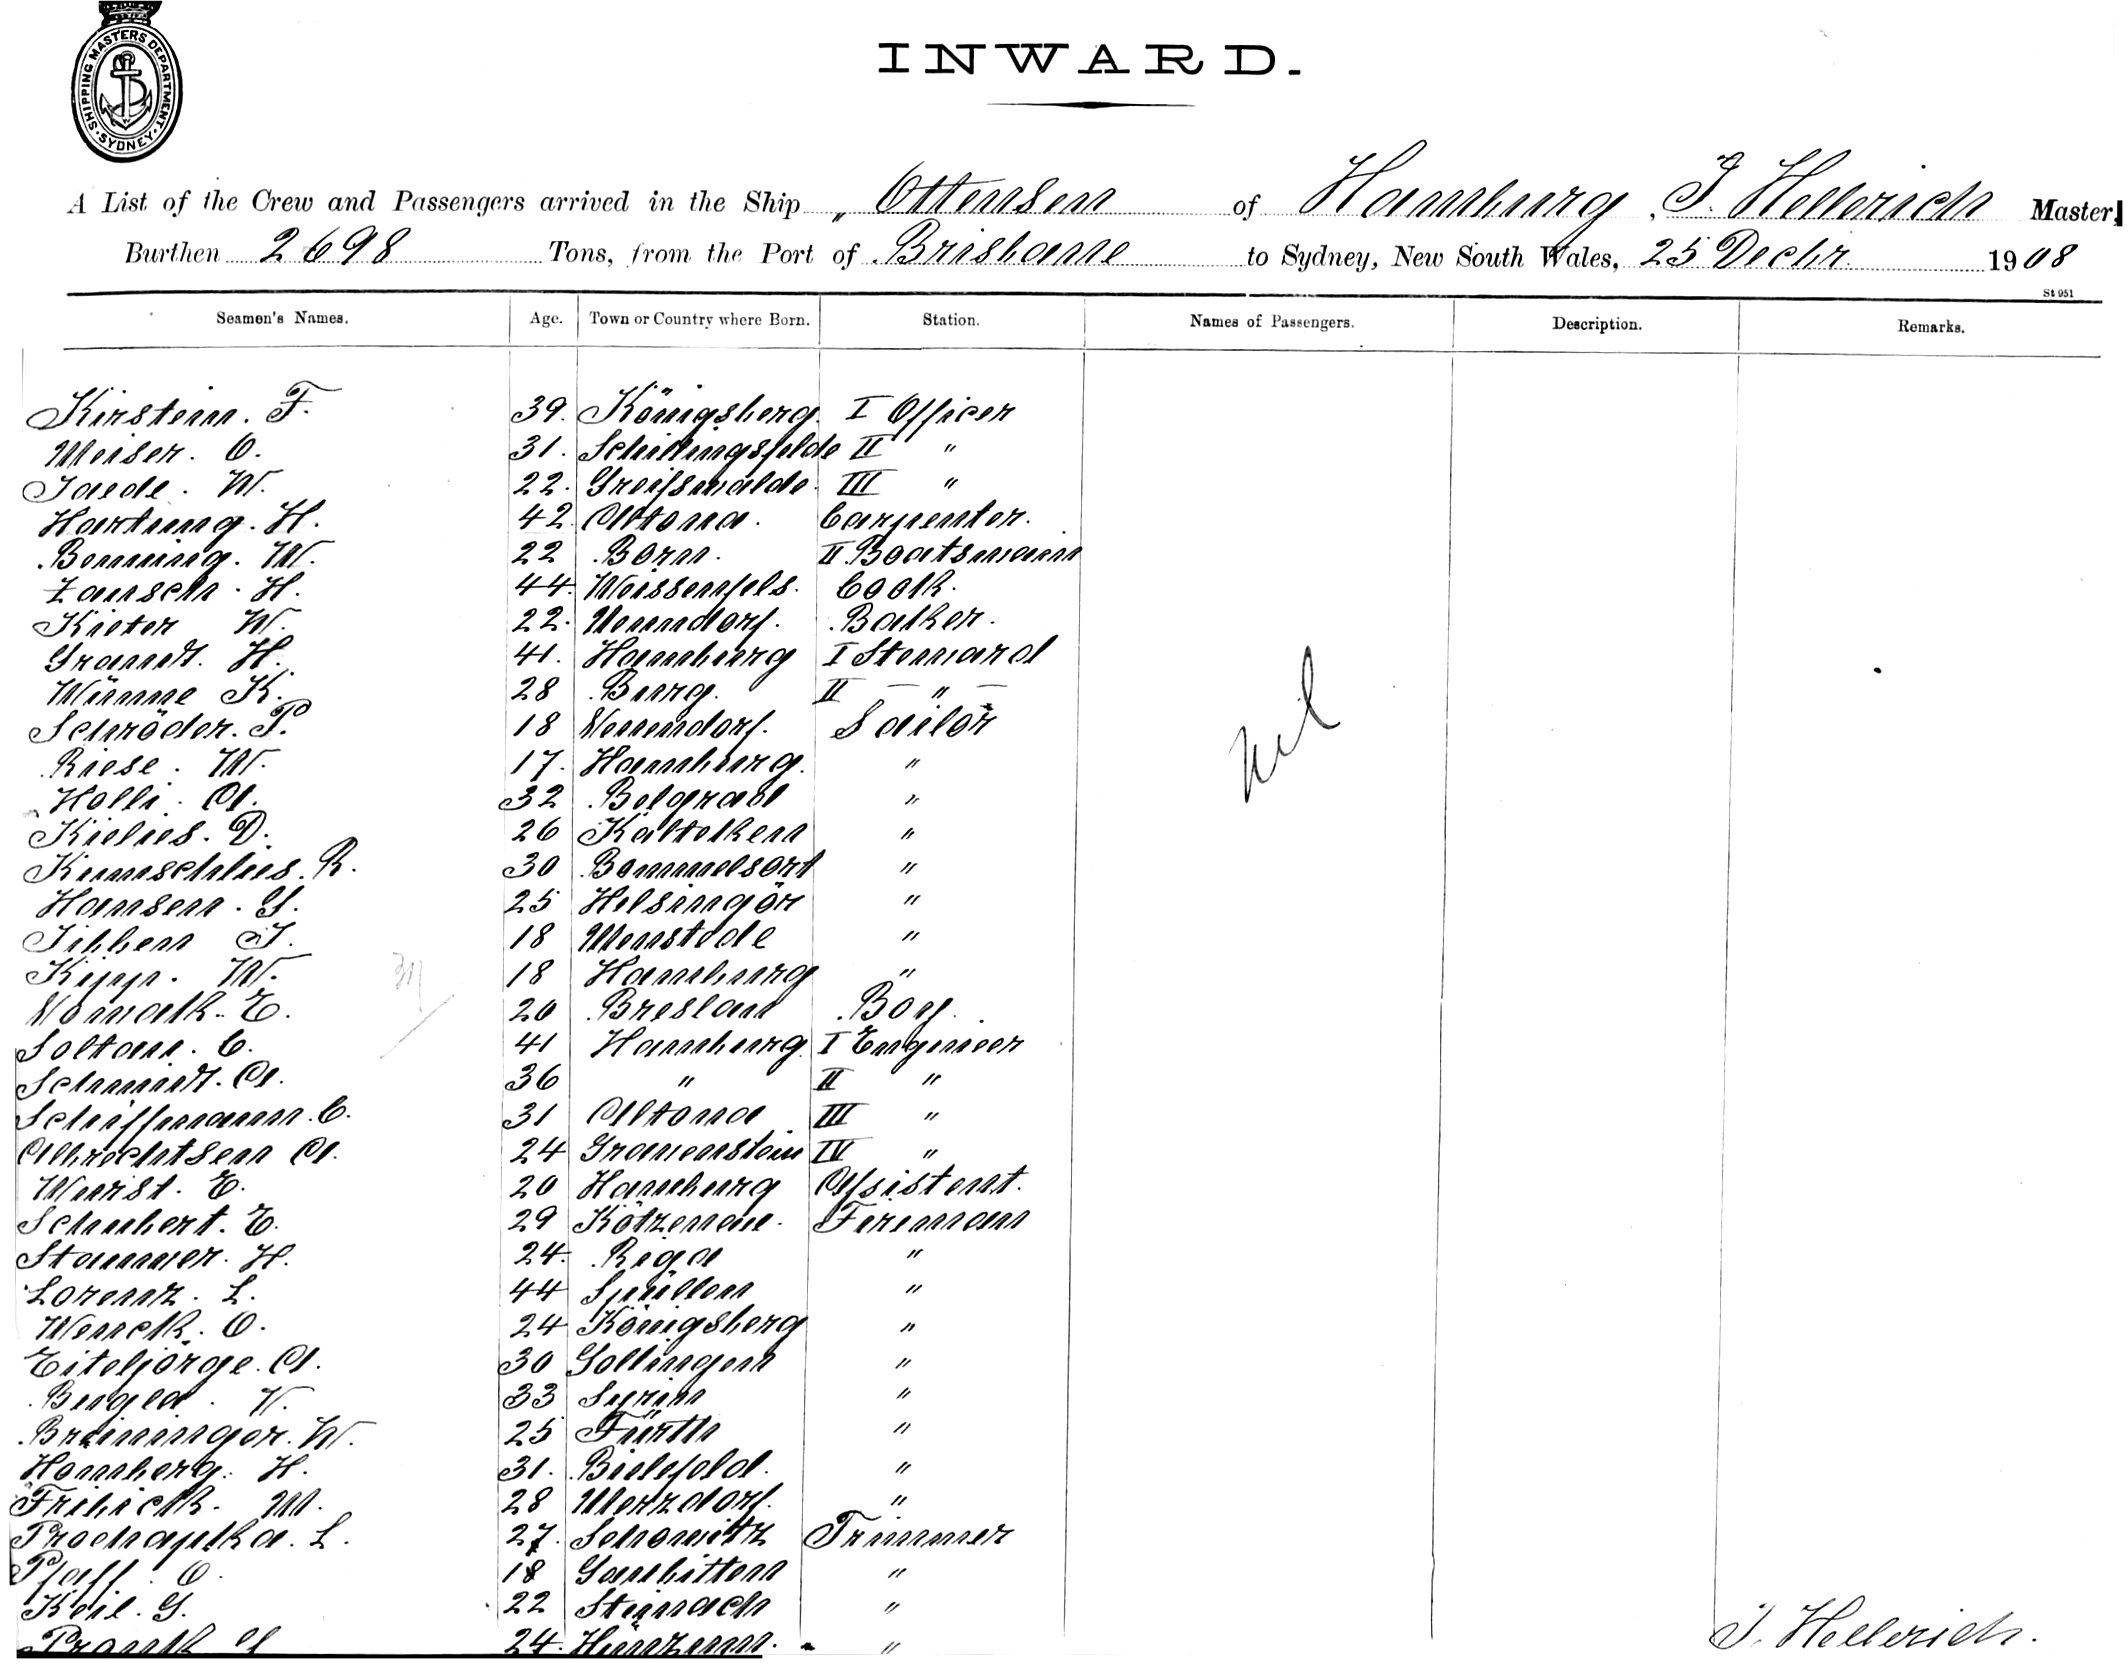 SHIPPING MASTERS DEPARTMENT · SYDNEY ·
INWARD.
A List of the Crew and Passengers arrived in the Ship „ Ottensen of Hamburg, J. Hellerich Master,
Burthen 2698 Tons, from the Port of Brisbane to Sydney, New South Wales, 25 Decbr. 1908
St 951
Seamen's Names. Age. Town or Country where Born. Station. Names of Passengers. Description. Remarks.
Kirstein. F. 39. Königsberg. I Officer
Meiser. O. 31. Schillingsfelde II "
Jaede. W. 22. Greifswalde. III "
Hartung. H. 42. Altona. Carpenter.
Benning. W. 22 Born. II. Boatsmain
Zansch. H. 44. Weissenfels. Cook.
Kieter W. 22. Nenndorf. Baker.
Grandt. H. 41. Hamburg I Steward
Wünne K. 28 Burg. II — " —
Schröder. P. 18 Nenndorf. Sailor
Riese. W. 17. Hamburg. "
Holli. A. 32 Belgrad "
Kielies. D. 26 "
Kumschlies. R. 30 Bommelsört "
Hansen. G. 25 Helsingör "
Jibben J. 18 Wenstede "
Kipp. W. 18 Hamburg "
Nowack. E. 20 Breslau Boy.
Soltau. C. 41 Hamburg I Engineer
Schmidt. A. 36 " II "
Schiffmann. C. 31 Altona III "
Albrechtsen A. 24 Gravenstein IV "
Wurst. E. 20 Hamburg Assistent.
Schubert. E. 29 Kotzenau. Fireman
Stammer. H. 24. Riga "
Lorenz. L. 44 Spüllen "
Wenck. O. 24 Königsberg "
Eiteljörge. A. 30 Sollingen "
Bugla. V. 33 Syrin "
Breininger. W. 25 Fürth "
Homberg. H. 31. Bielefeld. "
Fribick. M. 28 Merzdorf. "
Prochapka. L. 27. Schowitz Trimmer
Pfaff. O. 18 Gambitten "
Keil. G. 22 Steinach "
Prank G 24. Hünzenn. "
Nil
J. Hellerich.